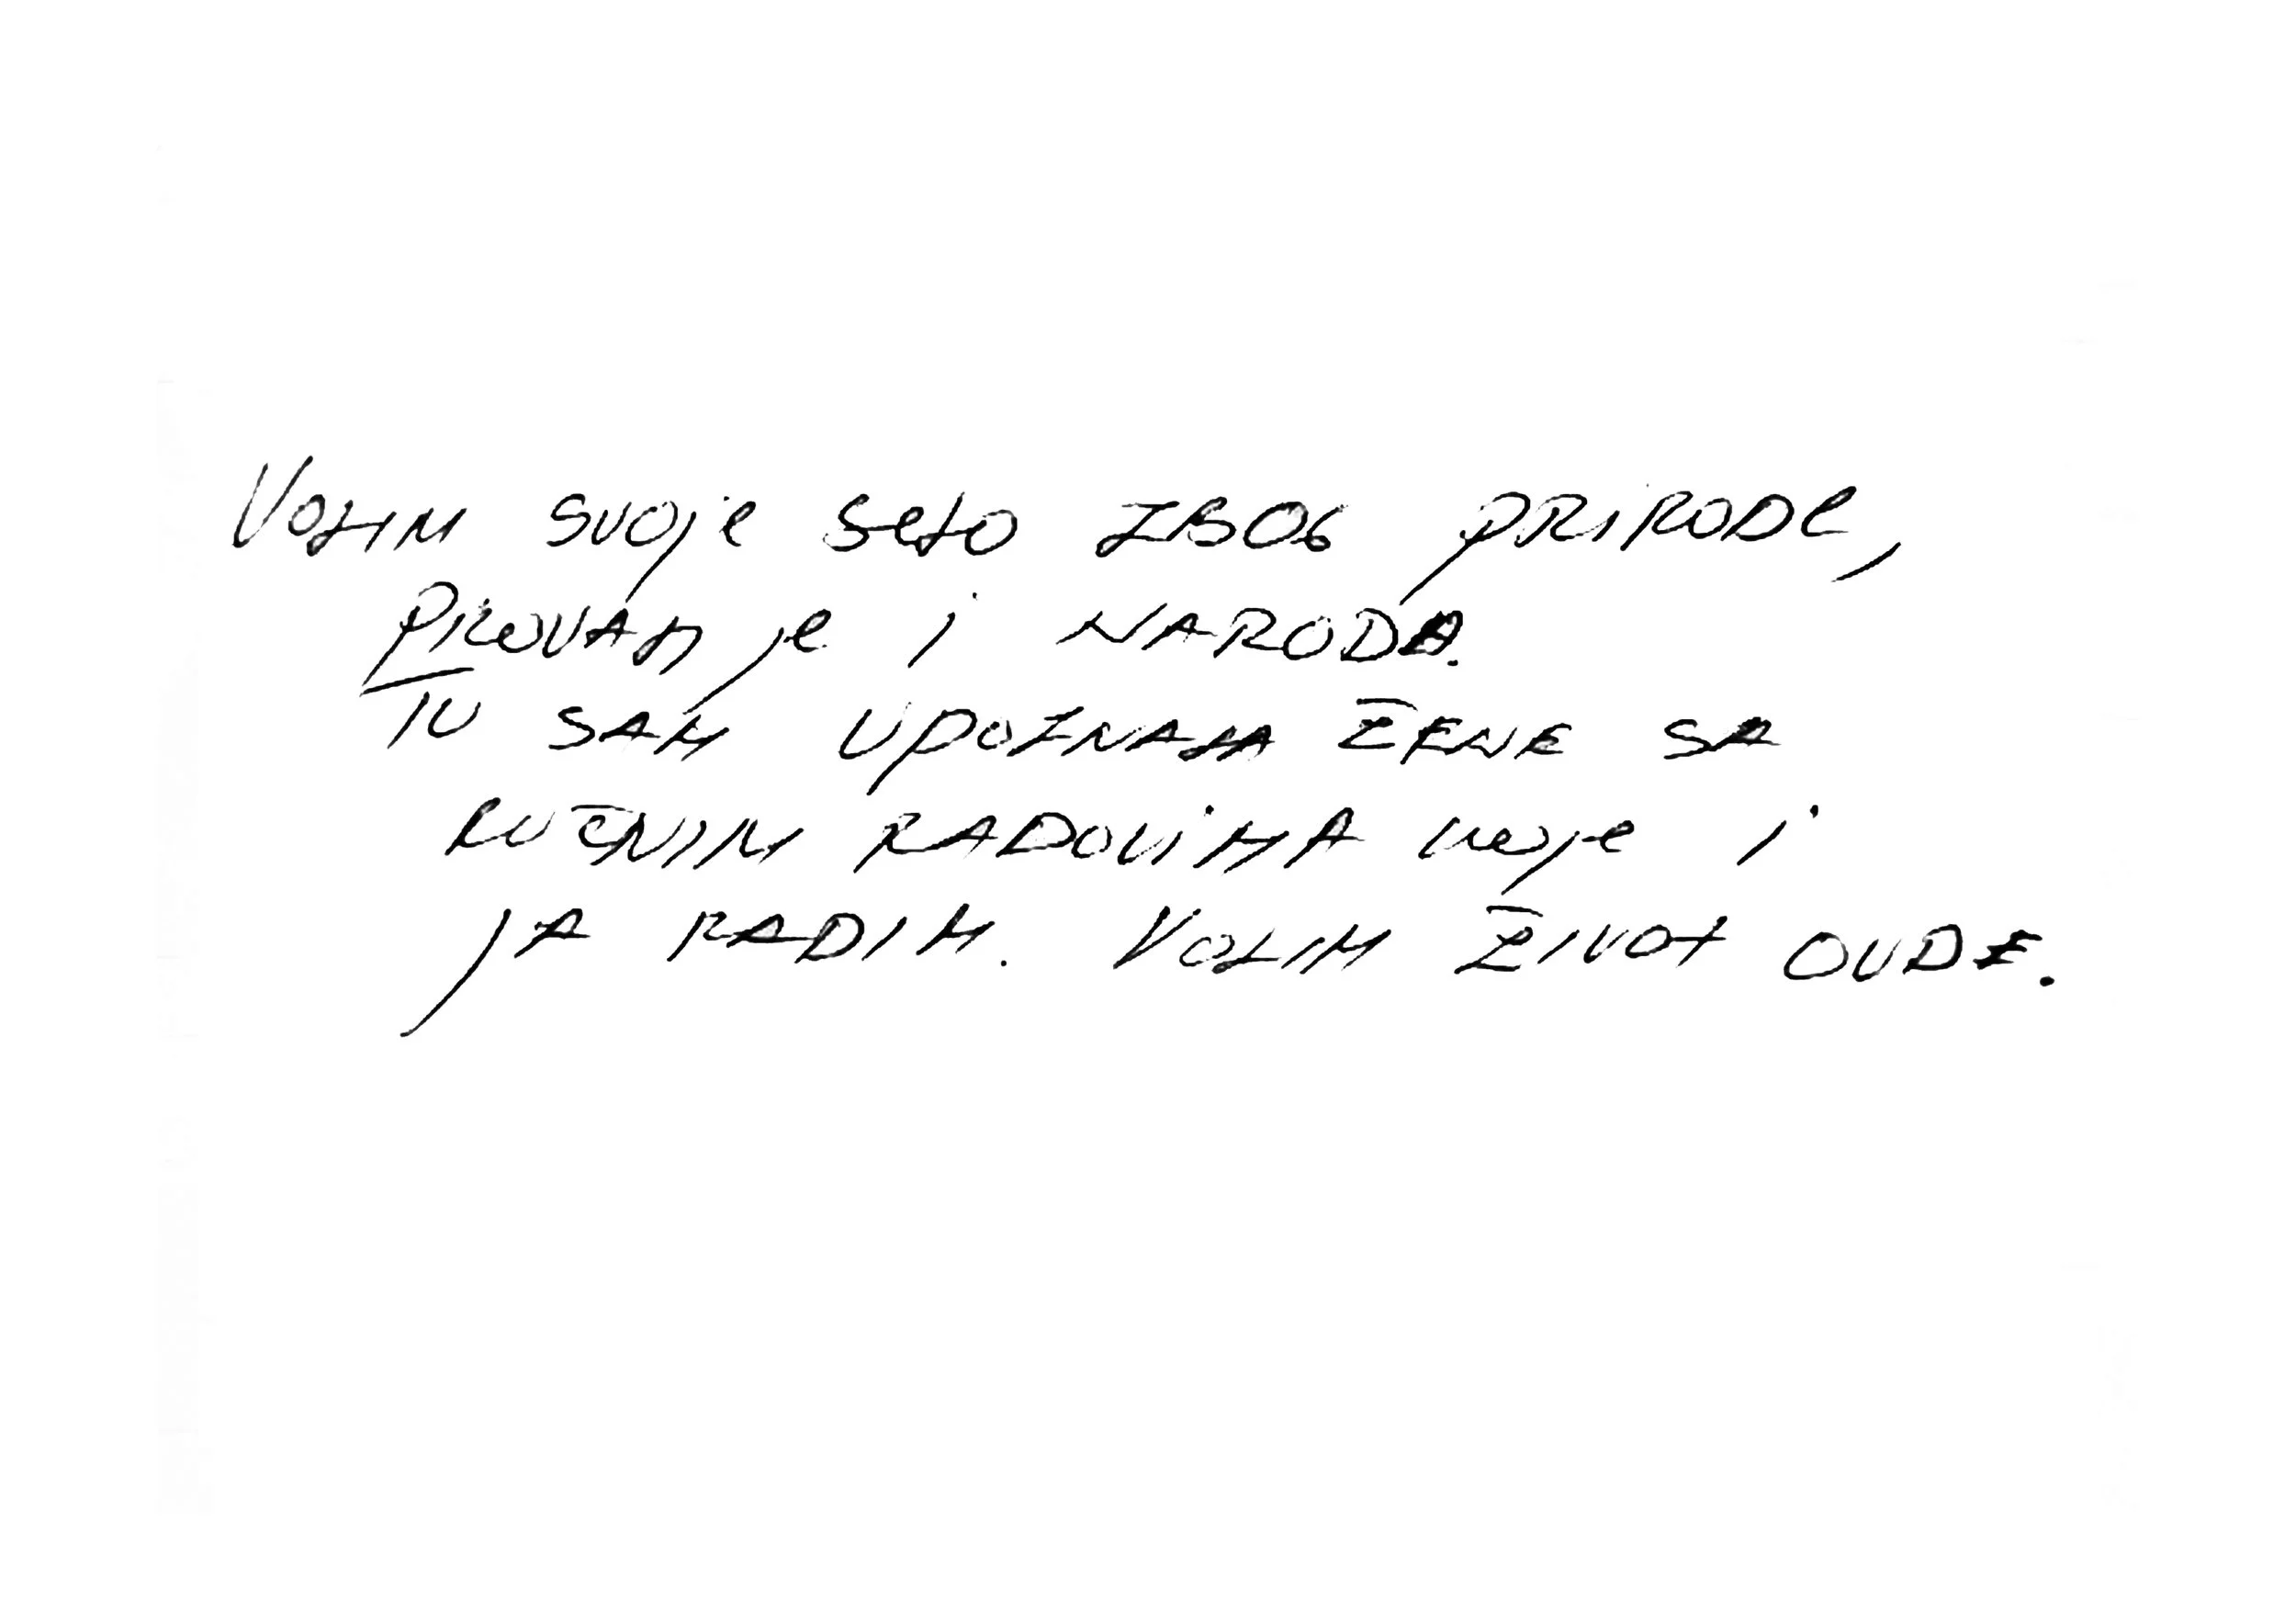 VOLIM SVOJE SELO ZBOG PRIRODE,
JE I NAROD.
TU SAM UPOZNALA ŽENE SA
RUČNIM RADOVIMA KOJE I
JA RADIM. VOLIM ŽIVOT OVDE.